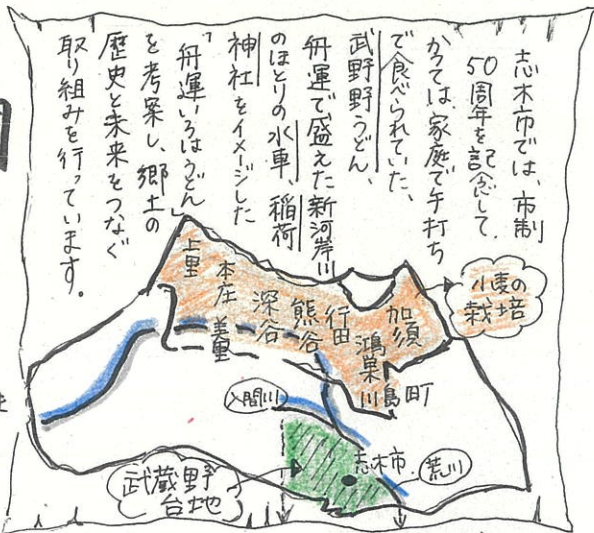 志木市では、市制
50周年を記念して、
かつては、家庭で手打ち
で食べられていた、
武野野うどん、
舟運で盛えた新河岸川
のほとりの水車、稲荷
神社をイメージした
「舟運いろはうどん」
を考案し、郷土の
歴史と未来をつなぐ
取り組みを行っています。
小麦の
栽培
上里
本庄
美里
深谷
熊谷
行田
鴻巣
加須
川島町
入間川
志木市
荒川
武蔵野
台地